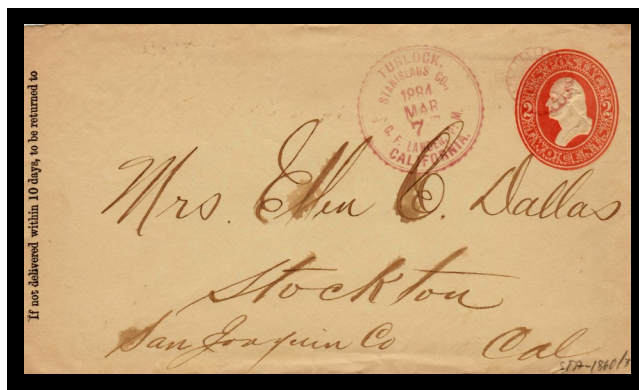 If not delivered within 10 days, to be returned to
TURLOCK,
STANISLAUS CO.,
1884
MAR
7
C. F. LANDER, P.M.
CALIFORNIA.
U.S. POSTAGE
2 2
Mrs. Ellen C. Dallas
Stockton
San Joaquin Co Cal
STA-1860/3